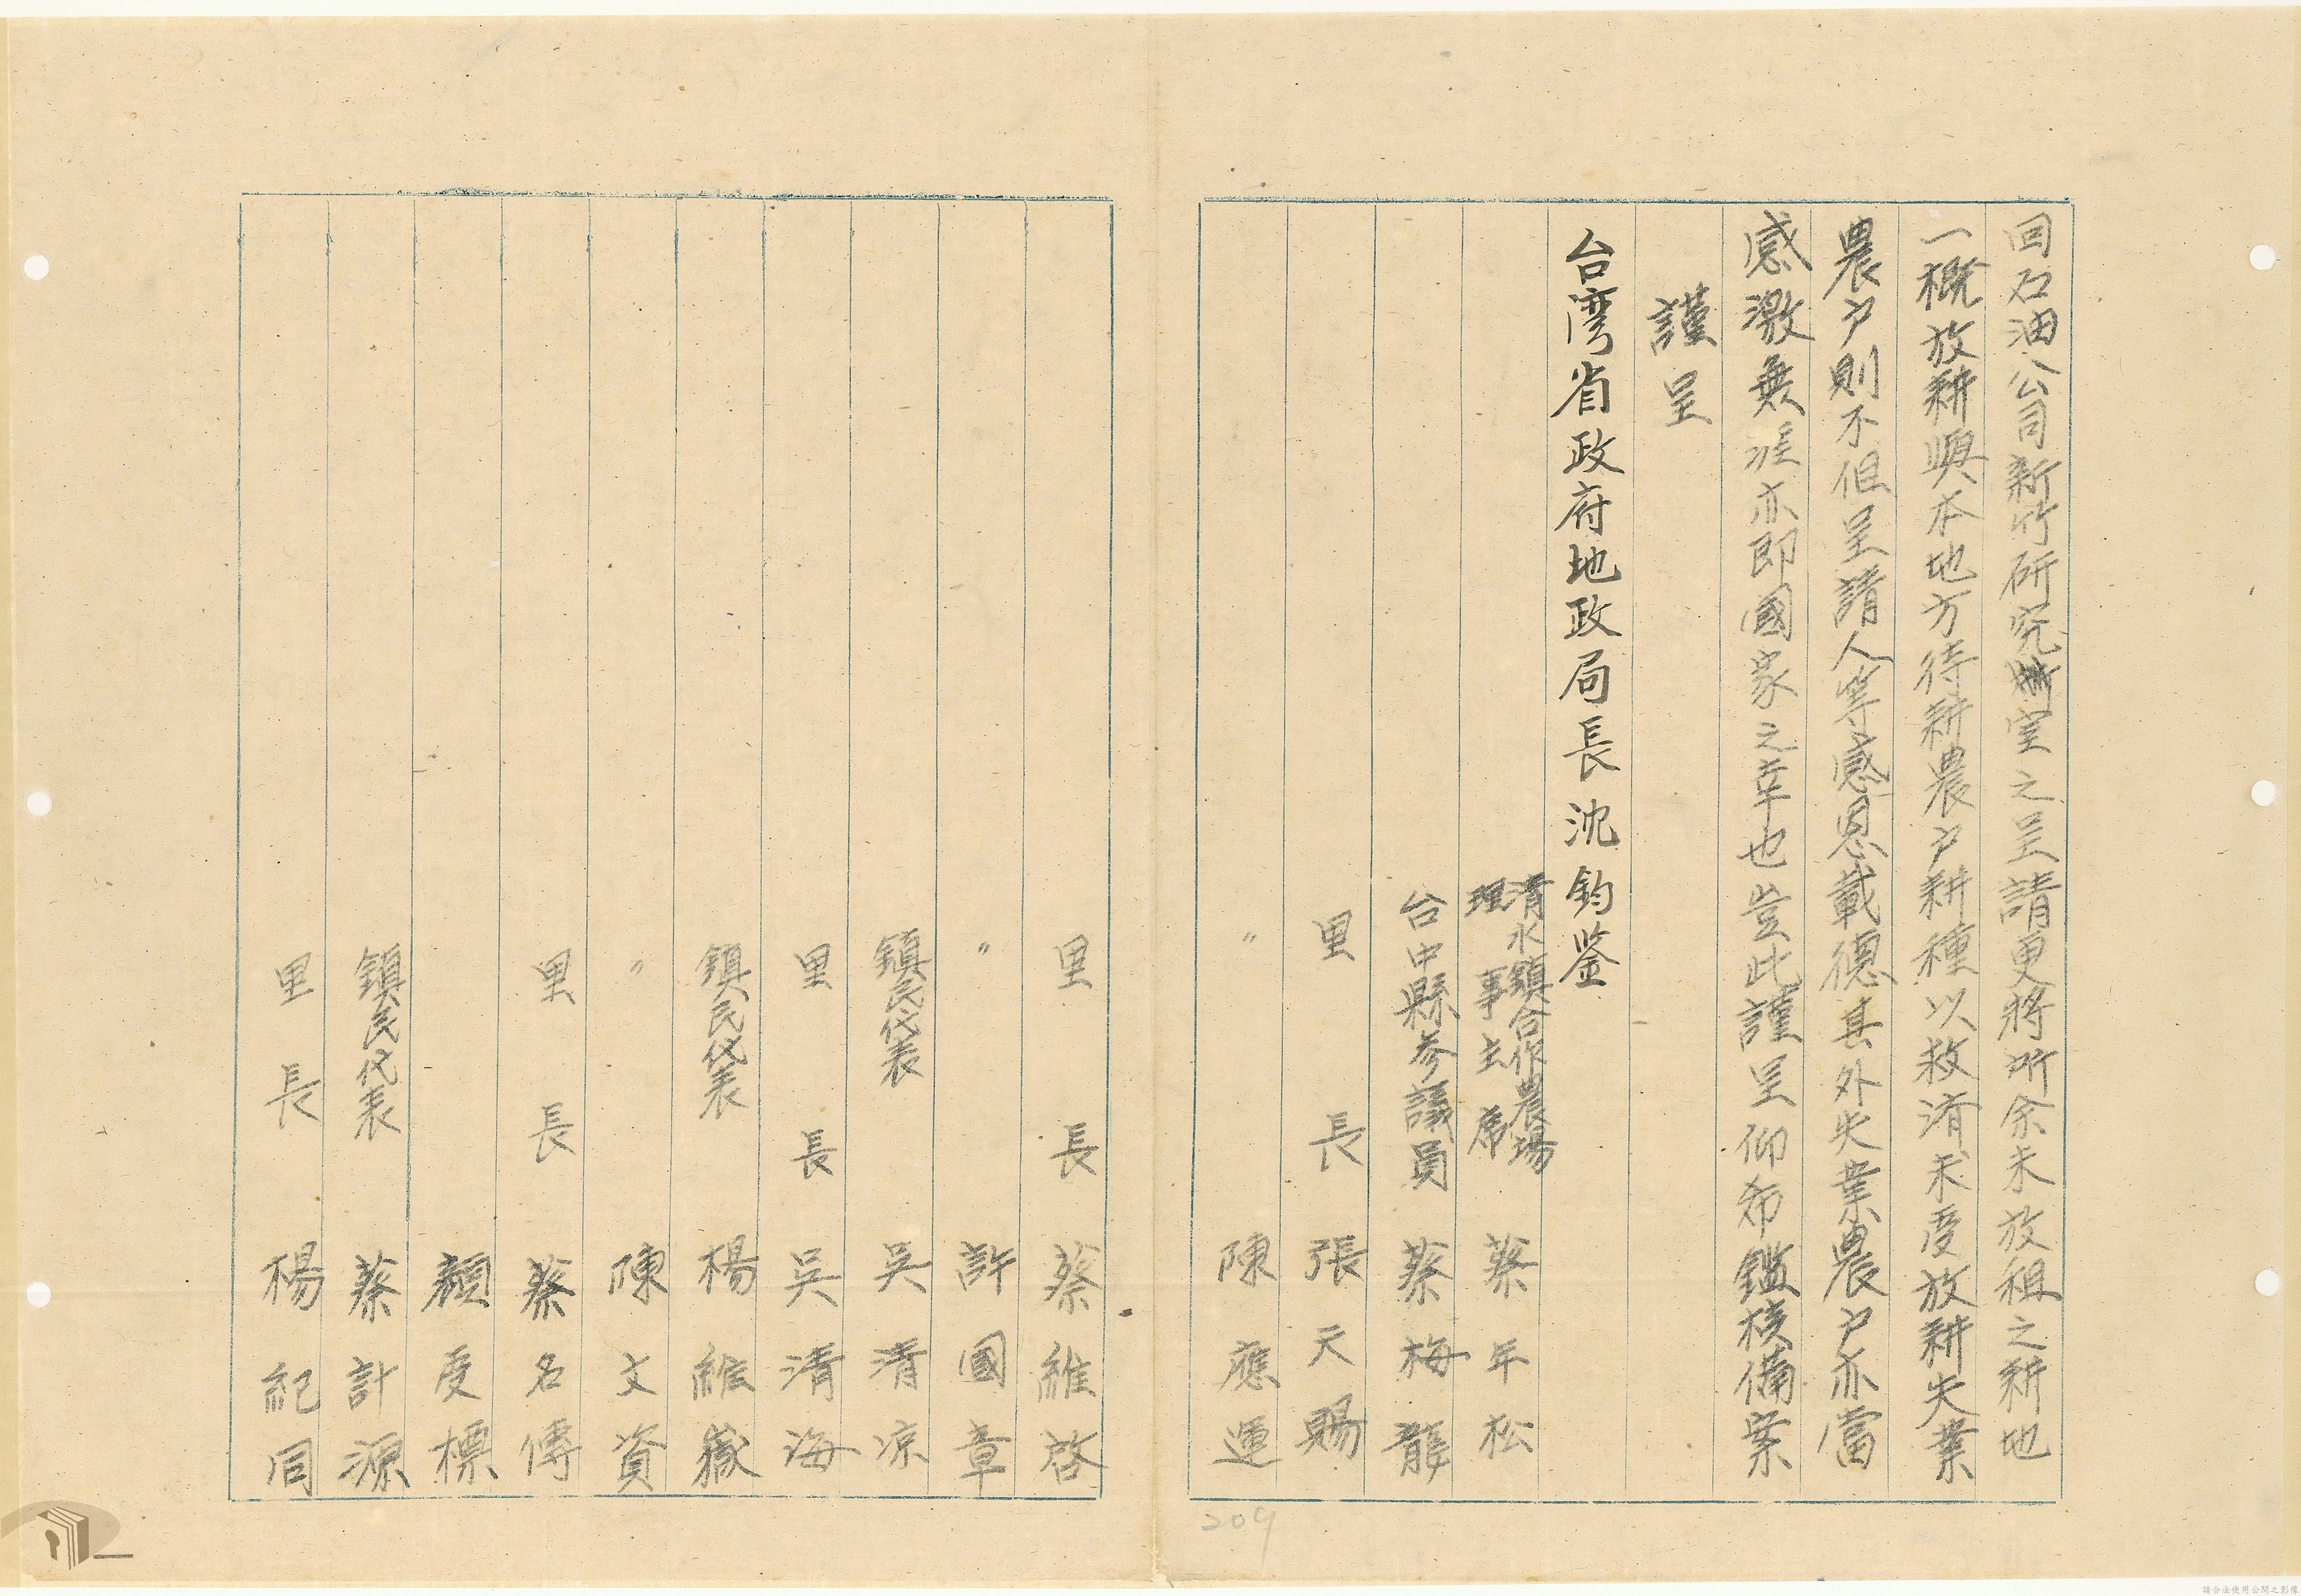 回石油公司新竹研究室之呈請更將所余未放租之耕地
一概放耕與本地方待耕農户耕種以救濟未受放耕失業
農户則不但呈請人等感恩載德其外失業農户亦當
感激無涯亦即國家之幸也豈此謹呈仰希鑑核備案
謹呈
台灣省政府地政局長沈鈞鉴
清水鎮合作農場
理事主席 蔡年松
台中縣参議員 蔡梅龍
里長 張天賜
〃 陳應運
里長 蔡維啓
〃 許國章
鎮民代表 吳清凉
里長 吳清海
鎮民代表 楊維嶽
〃 陳文資
里長 蔡名傳
顏受標
鎮民代表 蔡計源
里長 楊紀同
209
請合法使用公開之影像